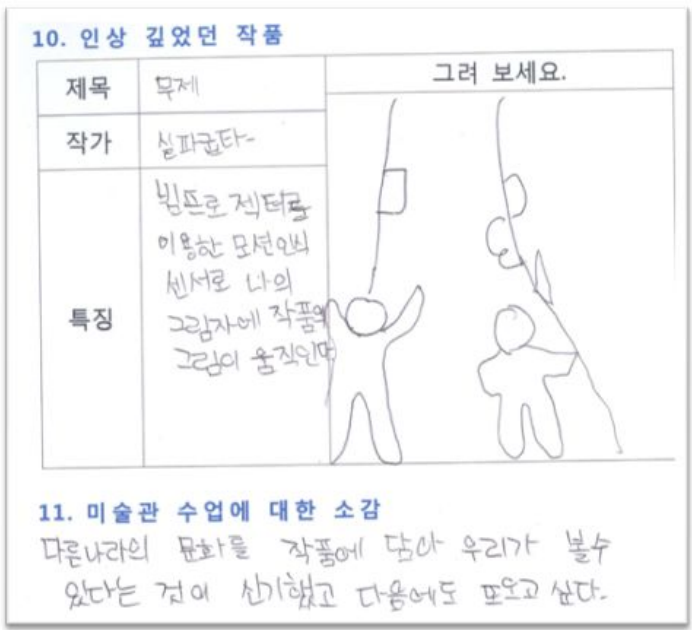 10. 인상 깊었던 작품
제목 무제 그려 보세요.
작가 실파굽타-
특징
빔프로젝터를
이용한 모션인식
센서로 나의
그림자에 작품의
그림이 움직인다
11. 미술관 수업에 대한 소감
다른나라의 문화를 작품에 담아 우리가 볼수
있다는 것이 신기했고 다음에도 또오고 싶다.